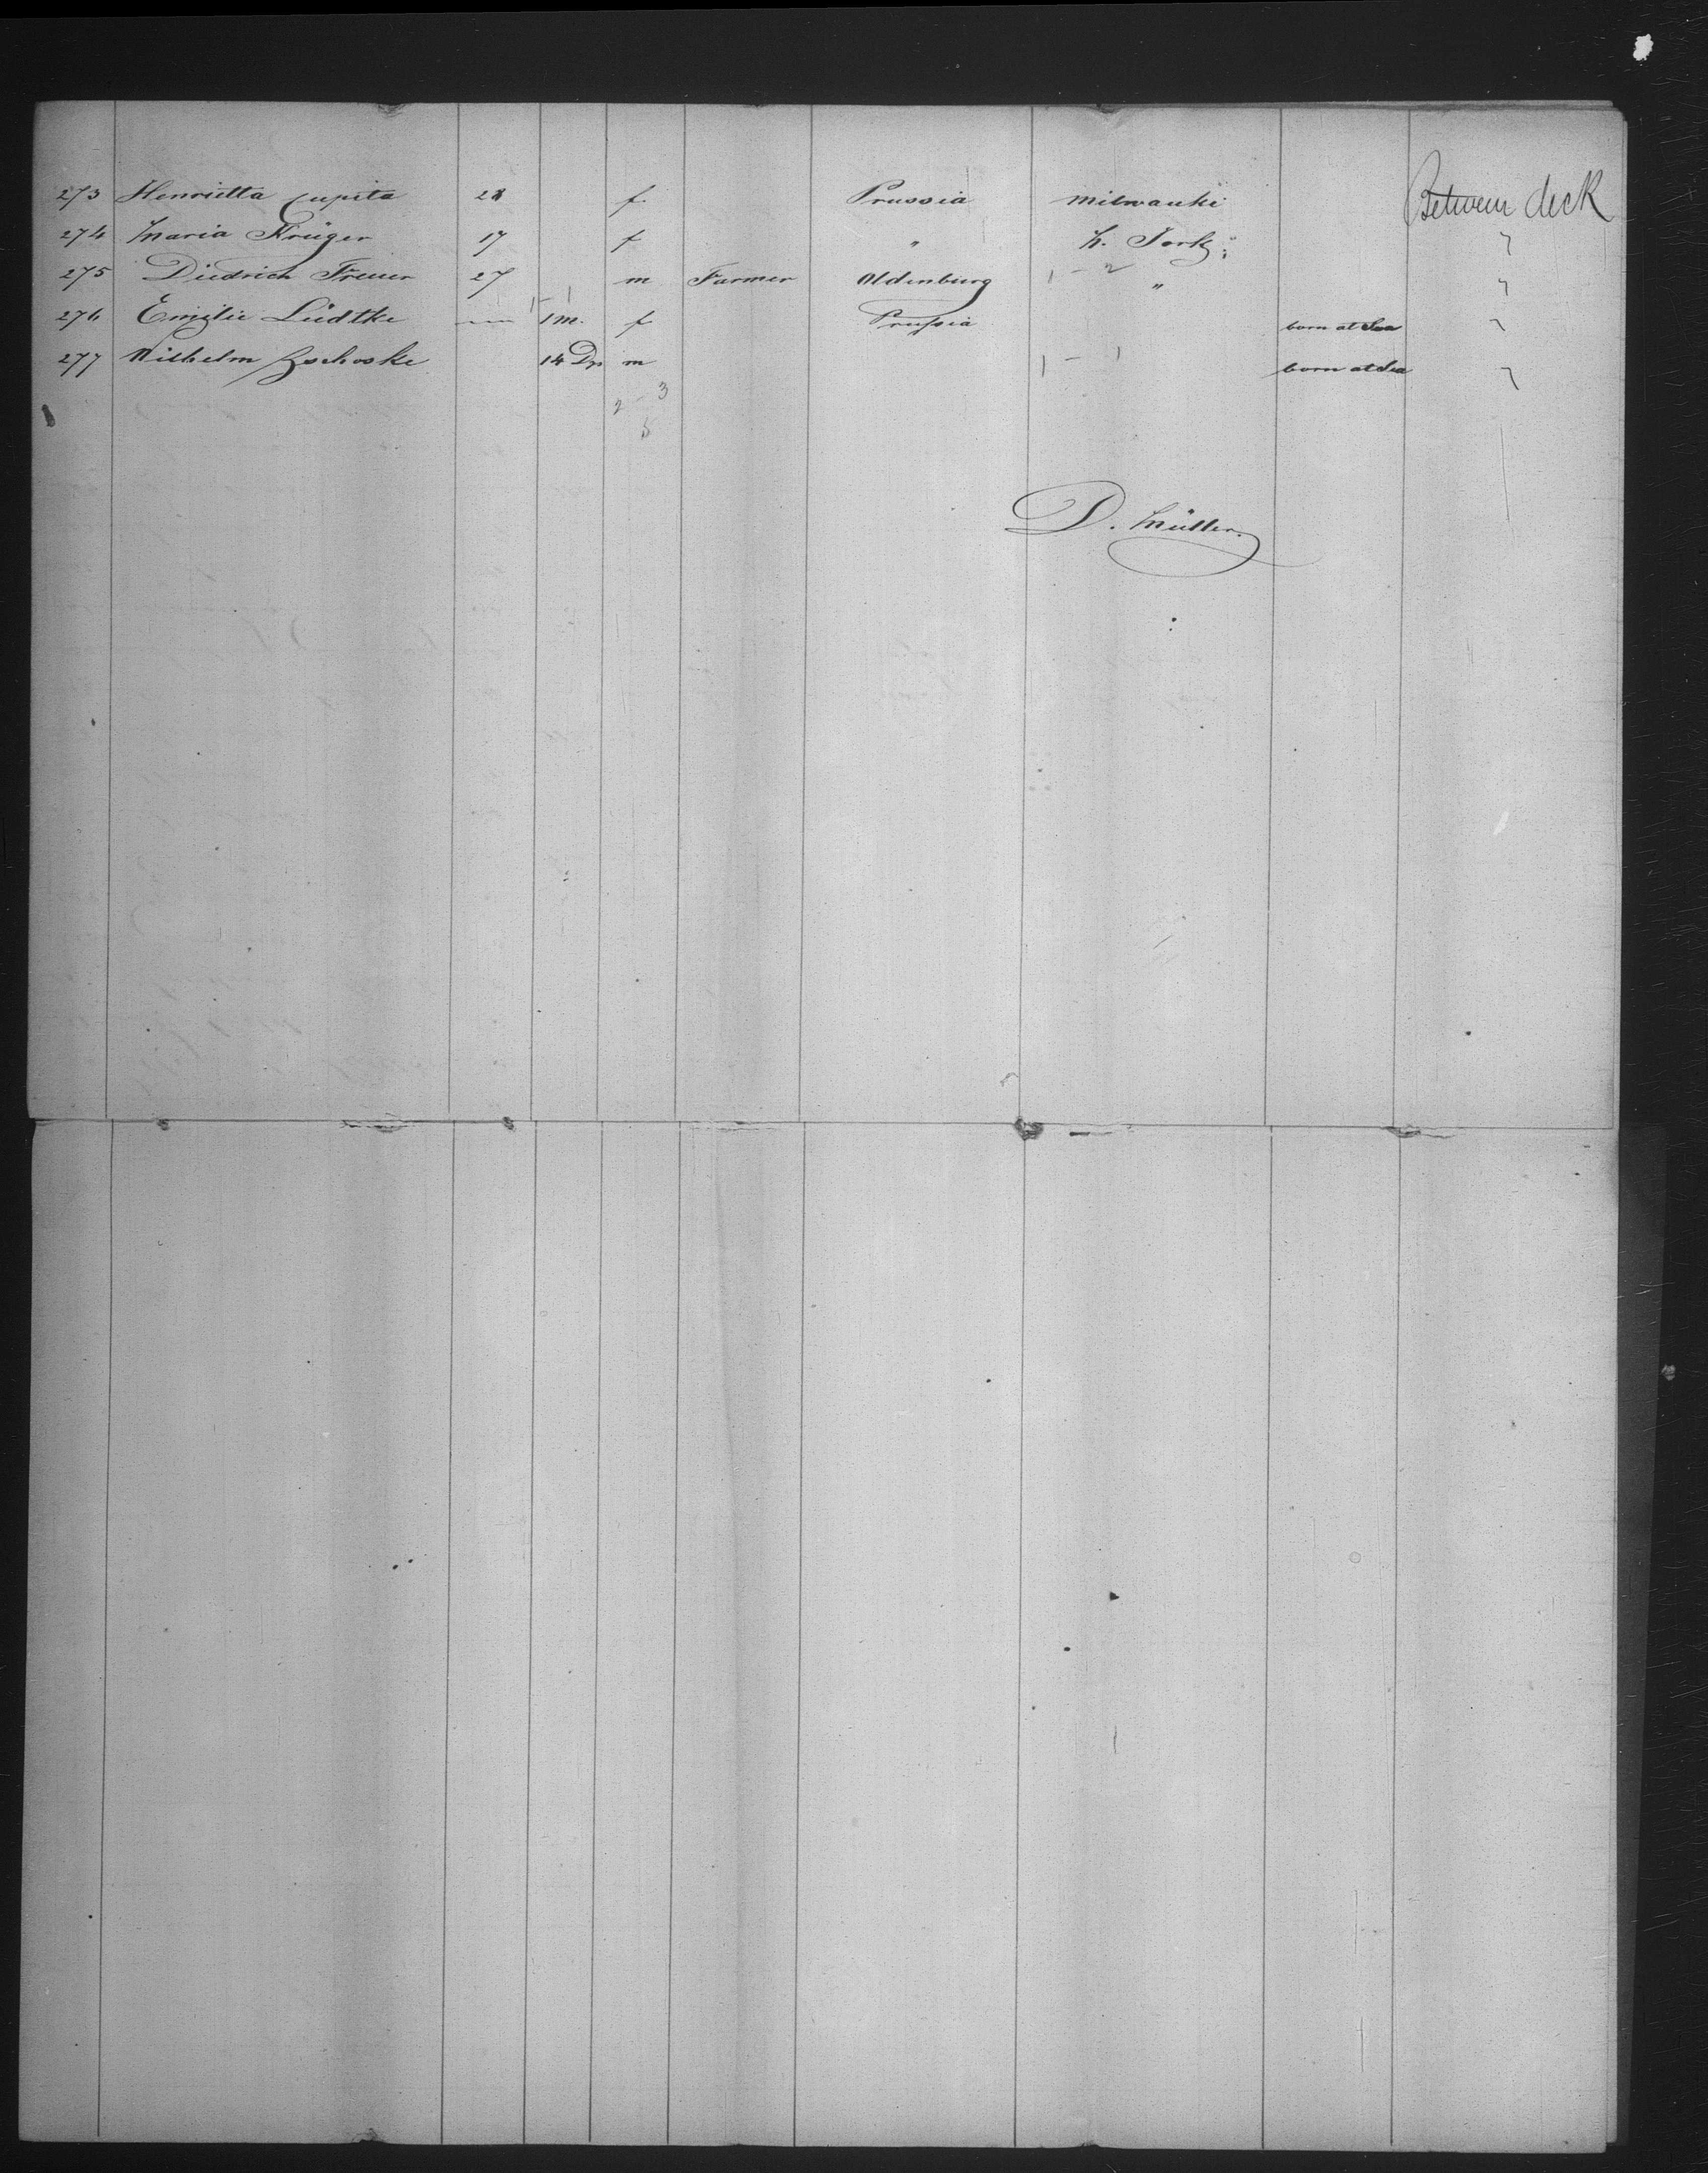 273 Henrietta Cupita 28 f. Prussia Milwauki Between deck
274 Maria Krüger 17 f " N. York "
275 Diedrich Freuer 27 m Farmer Oldenburg " "
1 - 2
1 - 1
276 Emilie Lüdtke — 1 m. f Prussia born at Sea "
277 Wilhelm Zschoske 14 Ds m born at Sea "
1 - 1
2 - 3
5
D. Müller.